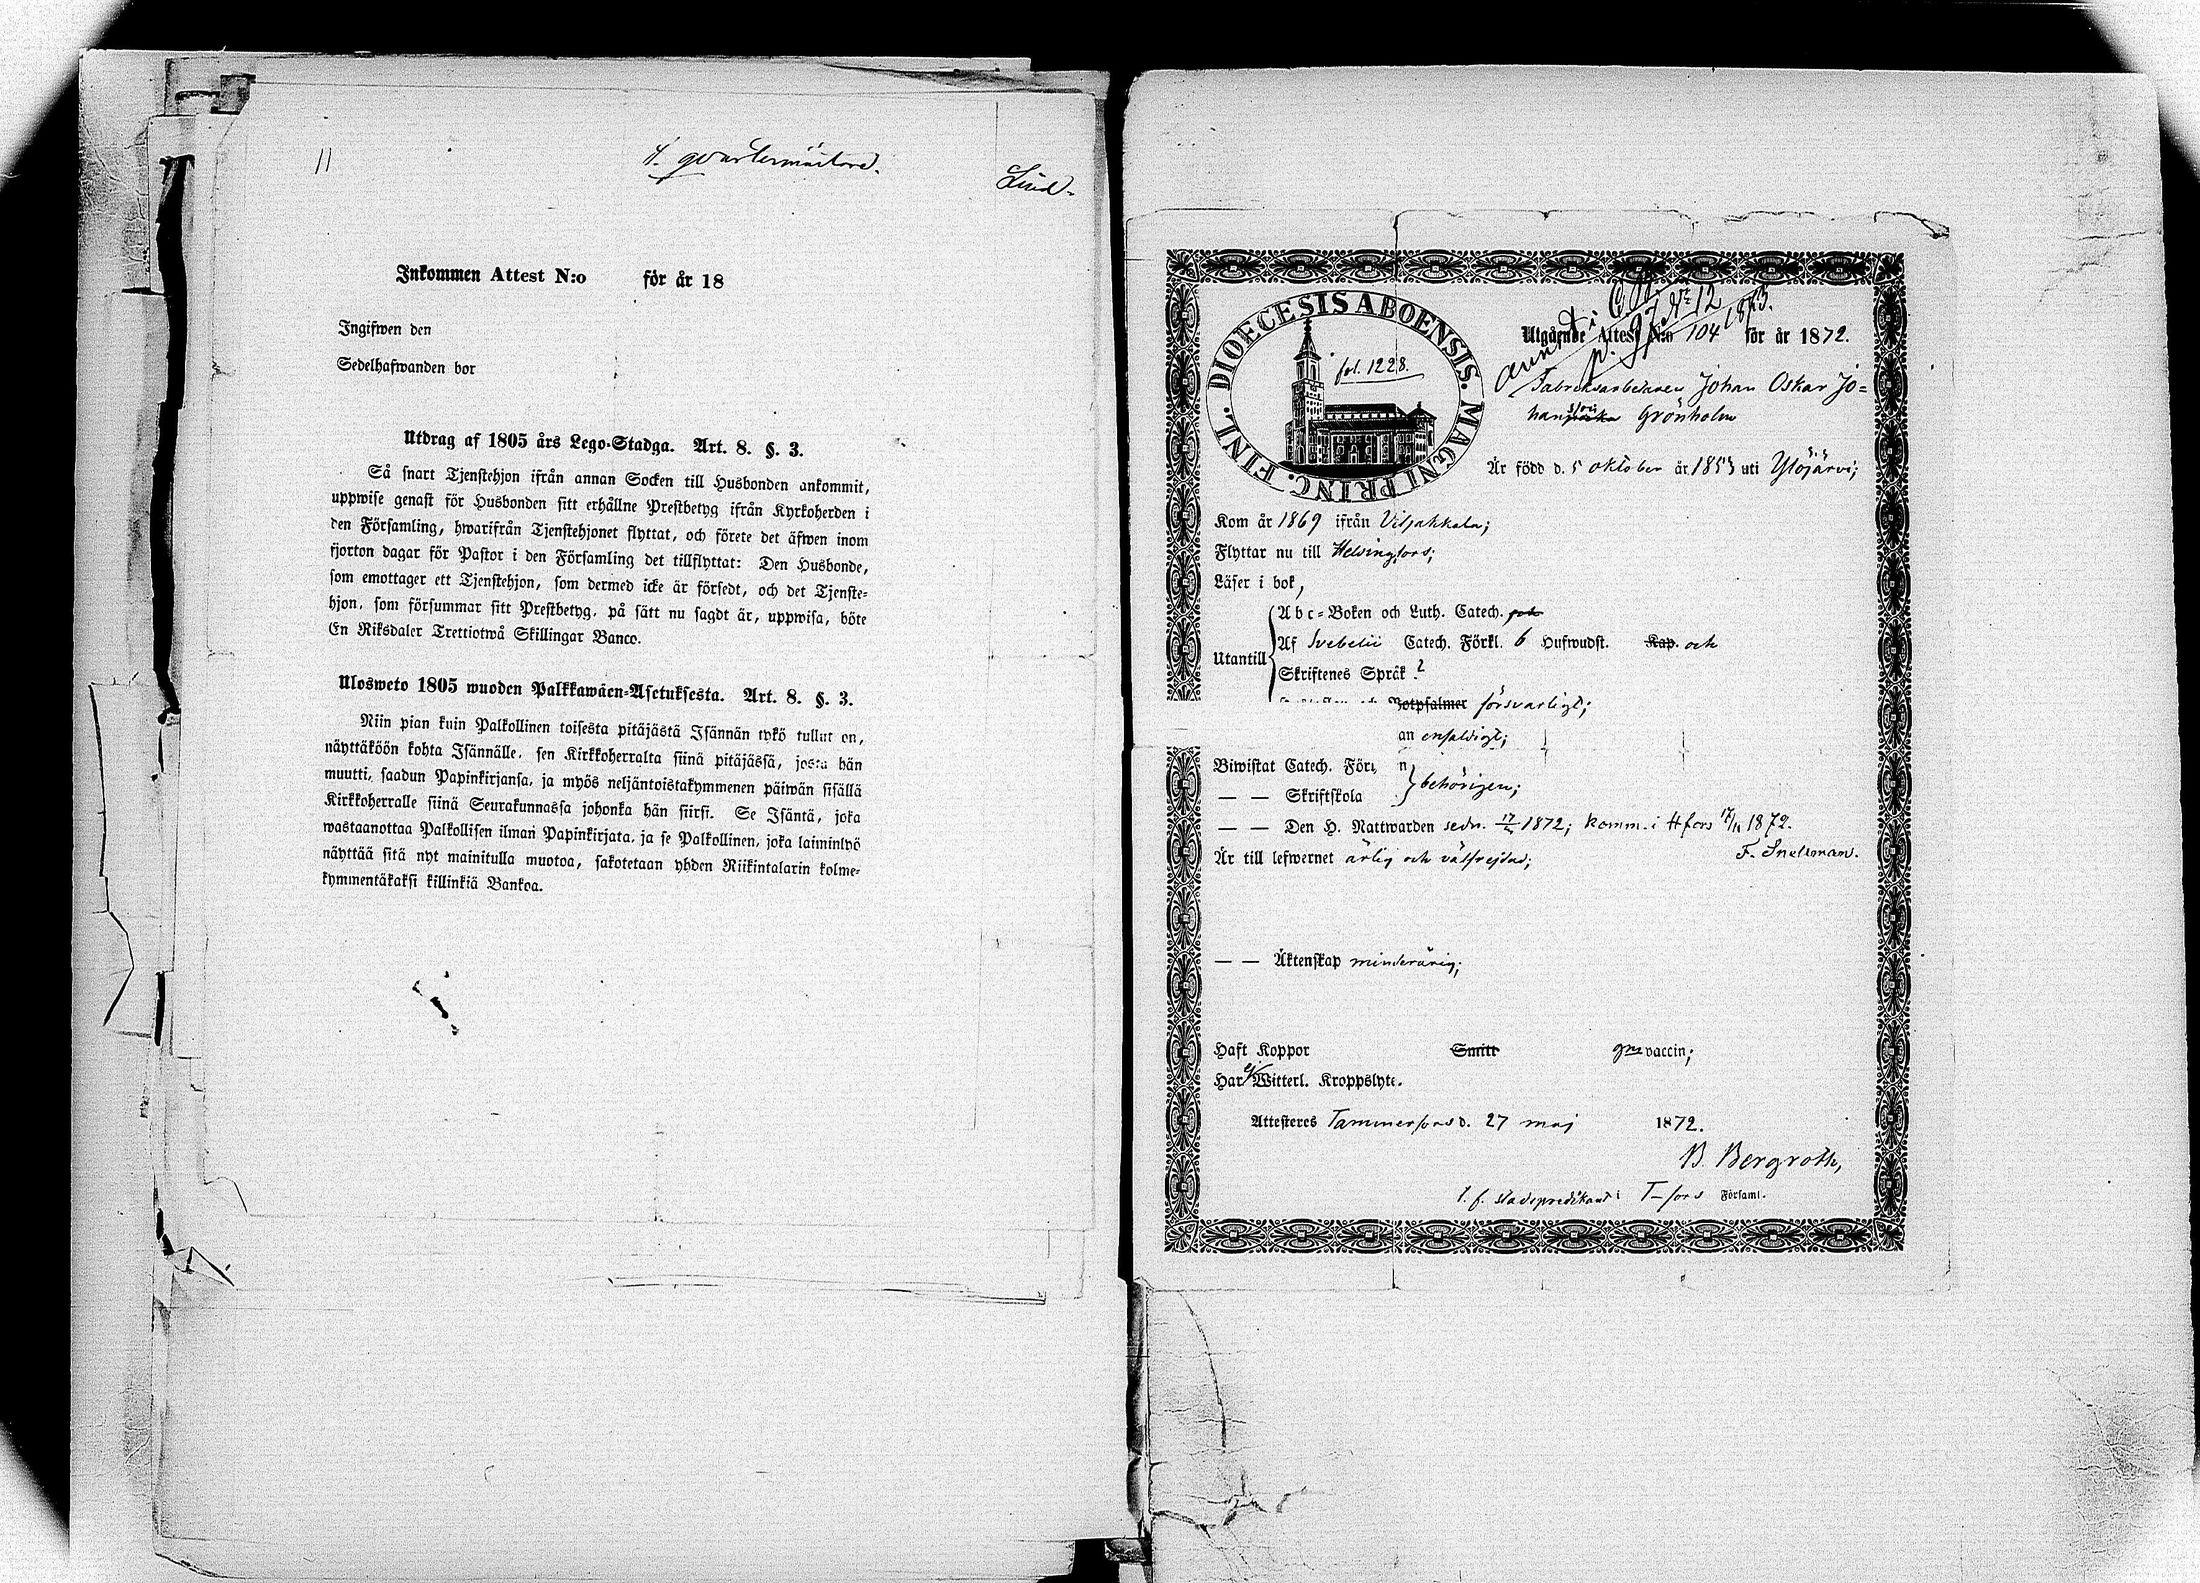 11
4. qvartermästare.
Lind-
Inkommen Attest N:o för år 18
Ingifwen den
Sedelhafwanden bor
Utdrag af 1805 års Lego-Stadga. Art. 8. §. 3.
Så snart Tjenstehjon ifrån annan Socken till Husbonden ankommit,
uppwise genast för Husbonden sitt erhållne Prestbetyg ifrån Kyrkoherden i
den Församling, hwarifrån Tjenstehjonet flyttat, och förete det äfwen inom
fjorton dagar för Pastor i den Församling det tillflyttat: Den Husbonde,
som emottager ett Tjenstehjon, som dermed icke är försedt, och det Tjenste-
hjon, som försummar sitt Prestbetyg, på sätt nu sagdt är, uppwisa, böte
En Riksdaler Trettiotwå Skillingar Banco.
Ulosweto 1805 wuoden Palkkawäen-Asetuksesta. Art. 8. §. 3.
Niin pian kuin Palkollinen toisesta pitäjästä Isännän tykö tullut on,
näyttäköön kohta Isännälle, sen Kirkkoherralta siinä pitäjässä, josta hän
muutti, saadun Papinkirjansa, ja myös neljäntoistakymmenen päiwän sisällä
Kirkkoherralle siinä Seurakunnassa johonka hän siirsi. Se Isäntä, joka
wastaanottaa Palkollisen ilman Papinkirjata, ja se Palkollinen, joka laiminlyö
näyttää sitä nyt mainitulla muotoa, sakotetaan yhden Riikintalarin kolme-
kymmentäkaksi killinkiä Bankoa.
DIOECESIS ABOENSIS. MAGNI PRINC. FINL.
fol. 1228.
p. 97 N:r 12 1873.
Utgående Attest N:o 104 för år 1872.
Fabriksarbetaren Johan Oskar Jo=
hansson Grönholm
Är född d. 5 oktober år 1853 uti Ylöjärvi;
Kom år 1869 ifrån Viljakkala;
Flyttar nu till Helsingfors;
Läser i bok,
Abc-Boken och Luth. Catech.
Utantill
Af Svebelii Catech. Förkl. 6 Hufwudst. Kap. och
Skriftenes Språk ?
Botpsalmer försvarligt;
an enfaldigt;
Biwistat Catech. För n
— — Skriftskola behörigen;
— — Den H. Nattwarden 1872; komm. i Hfors 17/11 1872.
F. Snellman.
Är till lefwernet ärlig och välfrejdad;
— — Äktenskap minderårig;
Haft Koppor Smitt gm vaccin;
Har ej Witterl. Kroppslyte.
Attesteres Tammerfors d. 27 maj 1872.
B. Bergroth,
t. f. stadspredikant i T-fors Församl.